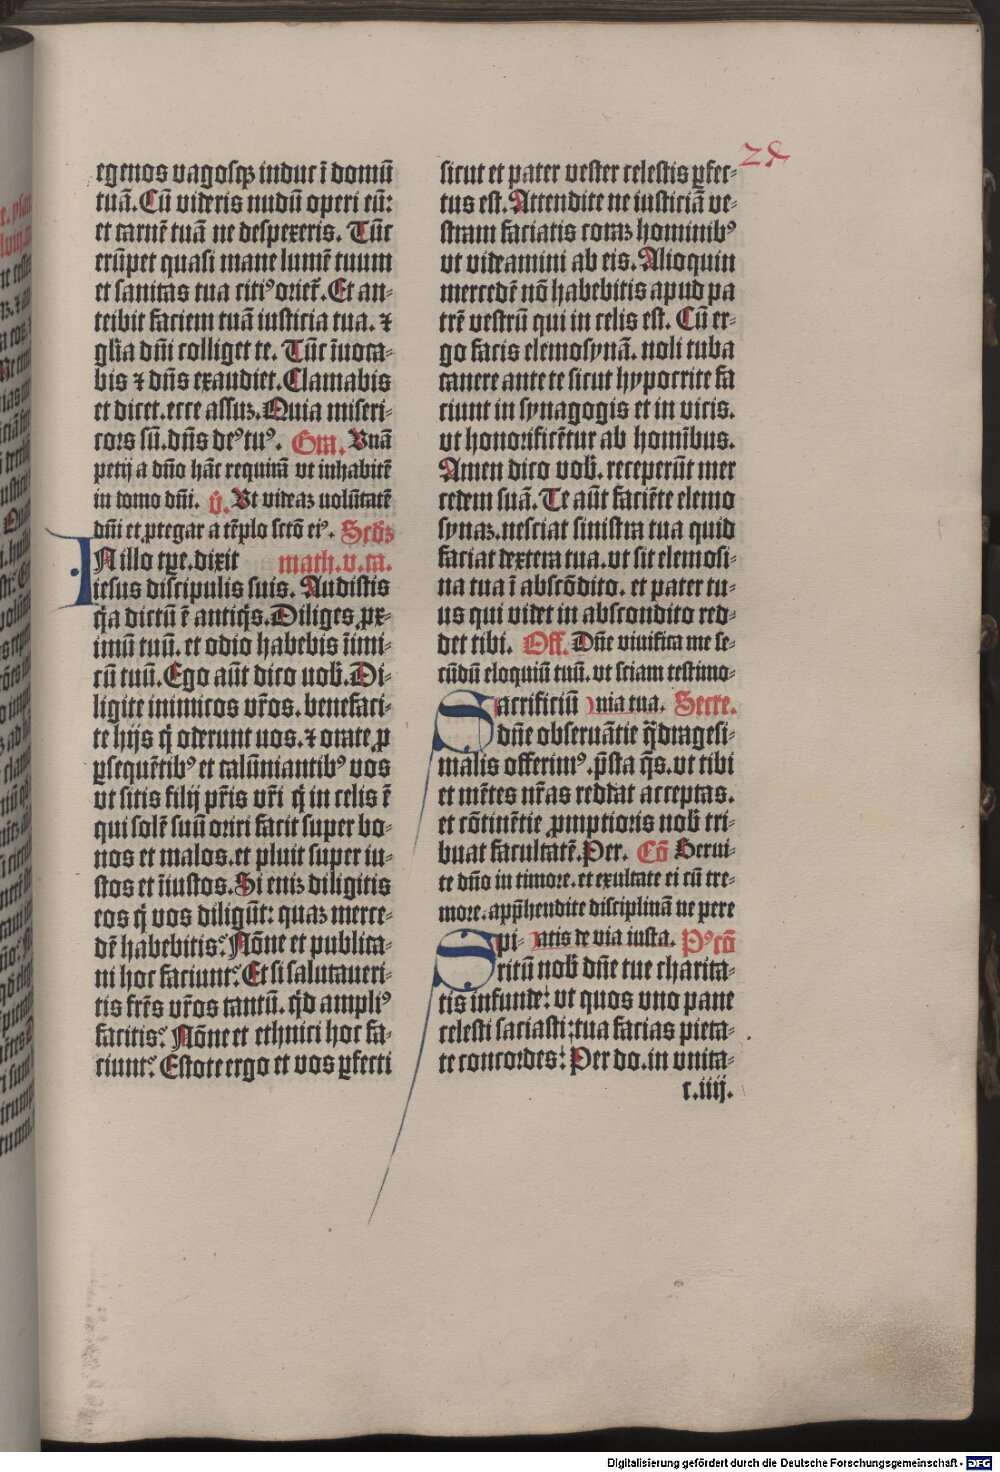 egenos vagosqꝫ induc ī domū
tuā. Cū videris nudū operi eū:
et carnē tuā ne despexeris. Tūc
erūpet quasi mane lumē tuum
et sanitas tua citiꝰ orieť. Et an-
teibit faciem tuā iusticia tua. ⁊
gl̄ia dn̄i colliget te. Tūc īuoca-
bis ⁊ dn̄s exaudiet. Clamabis
et dicet. ecce assuꝫ. Quia miseri-
cors sū. dn̄s deꝰ tuꝰ. Gra. Vnā
petij a dn̄o hāc requirā vt inhabitē
in domo dn̄i. v̄. Vt videaꝫ volūtatē
dn̄i et ꝓtegar a tēplo sctō eiꝰ. Scd̄ꝫ
IN illo tp̄e. dixit math. v. ca.
iesus discipulis suis. Audistis
q̄a dictū ē antiq̄s. Diliges ꝓx-
imū tuū. et odio habebis īimi-
cū tuū. Ego aūt dico vob̄. Di-
ligite inimicos vr̄os. benefaci-
te hijs q̄ oderunt vos. ⁊ orate ꝓ
ꝑsequētibꝰ et calūniantibꝰ vos
vt sitis filij pr̄is vr̄i q̄ in celis ē
qui solē suū oriri facit super bo-
nos et malos. et pluit super iu-
stos et īiustos. Si eniꝫ diligitis
eos q̄ vos diligūt: quaꝫ merce-
dē habebitis? Nōne et publica-
ni hoc faciunt? Et si salutaueri-
tis frēs vr̄os tantū. q̄d ampliꝰ
facitis? Nōne et ethnici hoc fa-
ciunt? Estote ergo et vos ꝑfecti
sicut et pater vester celestis ꝑfec-
tus est. Attendite ne iusticiā ve-
stram faciatis coraꝫ hominibꝰ
vt videamini ab eis. Alioquin
mercedē nō habebitis apud pa
trē vestrū qui in celis est. Cū er-
go facis elemosynā. noli tuba
canere ante te sicut hypocrite fa
ciunt in synagogis et in vicis.
vt honorificētur ab homībus.
Amen dico vob̄. receperūt mer
cedem suā. Te aūt faciēte elemo
synaꝫ. nesciat sinistra tua quid
faciat dextera tua. vt sit elemosi-
na tua ī abscōdito. et pater tu-
us qui videt in abscondito red-
det tibi. Off. Dn̄e viuifica me se-
cūdū eloquiū tuū. vt sciam testimo-
Sacrificiū nia tua. Secre.
dn̄e obseruātie q̄dragesi-
malis offerimꝰ. p̄sta q̄s. vt tibi
et mētes nr̄as reddat acceptas.
et cōtinētie ꝓmptioris nob̄ tri-
buat facultatē. Per. Cō Serui-
te dn̄o in timore. et exultate ei cū tre-
more. app̄hendite disciplinā ne pere
Spi- atis de via iusta. Pꝰcō
ritū nob̄ dn̄e tue charita-
tis infunde: vt quos vno pane
celesti saciasti: tua facias pieta-
te concordes: Per do. in vnita-
r.iiij.
Digitalisierung gefördert durch die Deutsche Forschungsgemeinschaft - DFG